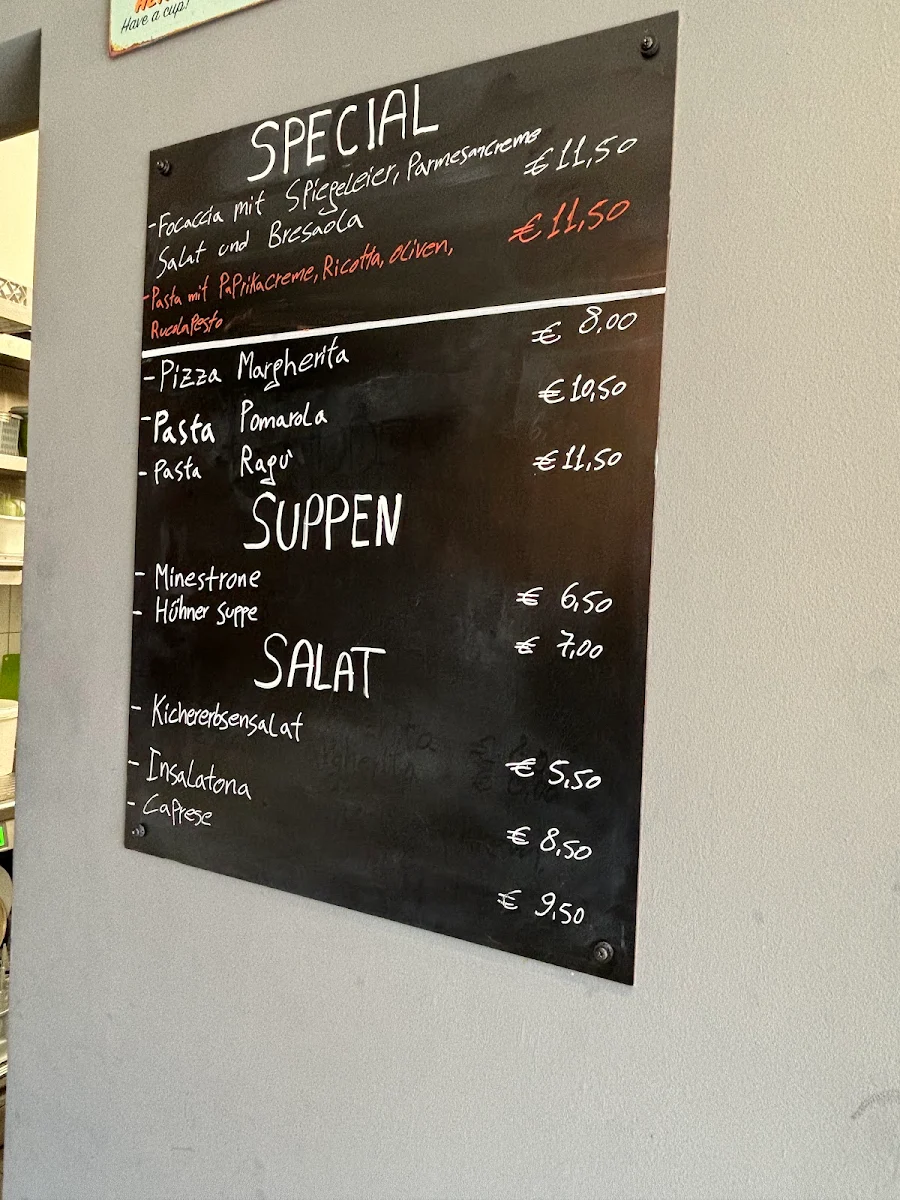 Have a cup!
SPECIAL
-Focaccia mit Spiegeleier, Parmesancreme € 11,50
Salat und Bresaola
-Pasta mit Paprikacreme, Ricotta, oliven, € 11,50
RucolaPesto
-Pizza Margherita € 8,00
-Pasta Pomarola € 10,50
-Pasta Ragù € 11,50
SUPPEN
- Minestrone € 6,50
- Hühner suppe € 7,00
SALAT
- Kichererbsensalat € 5,50
- Insalatona € 8,50
- Caprese € 9,50